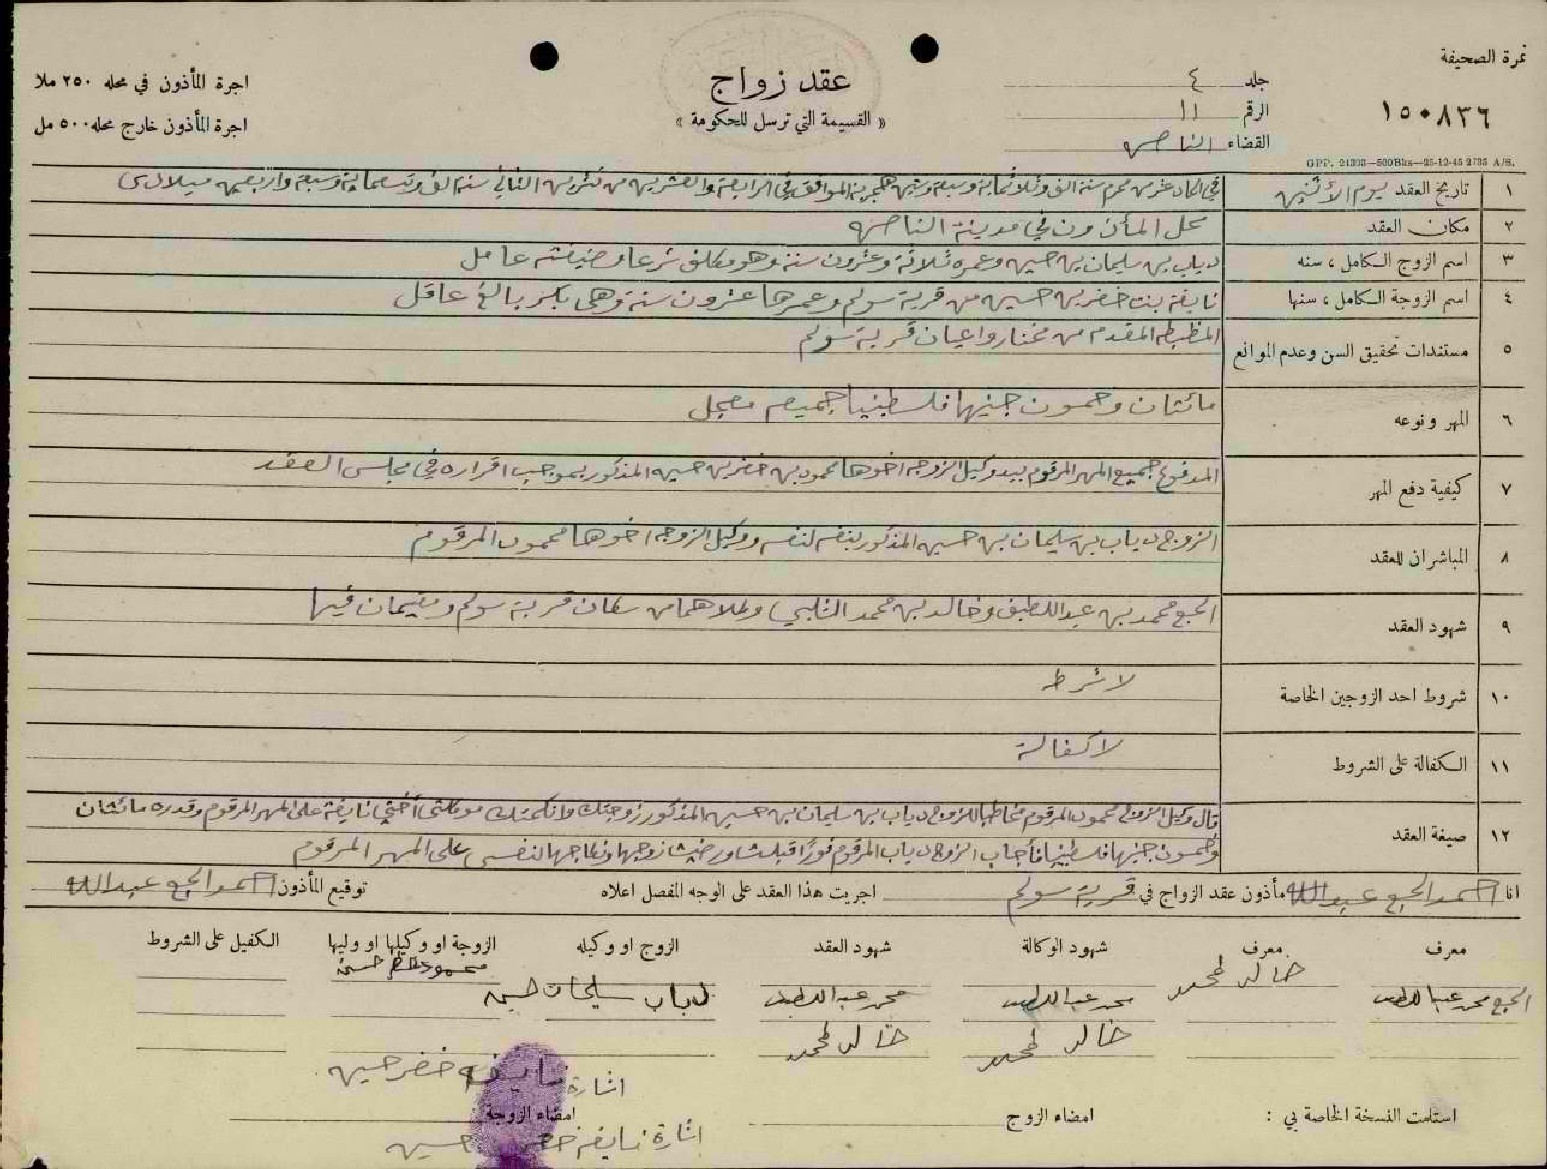 نمرة الصحيفة
١٥٠٨٣٦
G.P.P. 21303—500Bks—25-12-45 2735 A/S.
جلد ٤
الرقم ١١
القضاء الناصره
عقد زواج
« القسيمة التي ترسل للحكومة »
اجرة المأذون في محله ٢٥٠ ملا
اجرة المأذون خارج محله ٥٠٠ مل
١ تاريخ العقد يوم الأثنين في الحادي عشر من محرم سنة الف وثلاثماية وسبعة وستين هجرية الموافق في الرابعة والعشرين من تشرين الثاني سنة الف وتسعماية وسبعة واربعين ميلادي
٢ مكان العقد محل المأذون في مدينة الناصره
٣ اسم الزوج الكامل ، سنه دياب بن سليمان بن حسين وعمره ثلاثة وعشرون سنة وهو مكلف شرعا وضيفته عامل
٤ اسم الزوجة الكامل ، سنها نايفة بنت خضر بن حسين من قرية سولم وعمرها عشرون سنة وهي بكر بالغ عاقل
٥ مستندات تحقيق السن وعدم الموانع المظبطه المقدمه من مختار واعيان قرية سولم
٦ المهر ونوعه مائتان وخمسون جنيها فلسطينيا جميعه معجل
٧ كيفية دفع المهر المدفوع جميع المهر المرقوم بيد وكيل الزوجه اخوها محمود بن خضر بن حسين المذكور بموجب اقراره في مجلس العقد
٨ المباشران للعقد الزوج دياب بن سليمان بن حسين المذكور بنفسه لنفسه ووكيل الزوجه اخوها محمود المرقوم
٩ شهود العقد الحج محمد بن عبد اللطيف وخالد بن محمد الثلجي وكلاهما من سكان قرية سولم ومقيمان فيها
١٠ شروط احد الزوجين الخاصة لا شرط
١١ الكفالة على الشروط لا كفالة
١٢ صيغة العقد قال وكيل الزوجه محمود المرقوم مخاطبا للزوج دياب بن سليمان بن حسين المذكور زوجتك وانكحتك موكلتي أختي نايفة على المهر المرقوم وقدره مائتان
وخمسون جنيها فلسطينيا فأجاب الزوج دياب المرقوم فورا قبلت ورضيت زواجها ونكاحها لنفسي على المهر المرقوم
انا احمد الحج عبدالله مأذون عقد الزواج في قرية سولم اجريت هذا العقد على الوجه المفصل اعلاه توقيع المأذون احمد الحج عبدالله
معرف معرف شهود الوكالة شهود العقد الزوج او وكيله الزوجة او وكيلها او وليها الكفيل على الشروط
الحج محمد عبد اللطيف خالد محمد محمد عبد اللطيف محمد عبد اللطيف دياب سليمان حسين محمود خضر حسين
خالد محمد خالد محمد
اشارة نايفه خضر حسين
استلمت النسخة الخاصة بي : امضاء الزوج امضاء الزوجة
اشارة نايفه خضر حسين